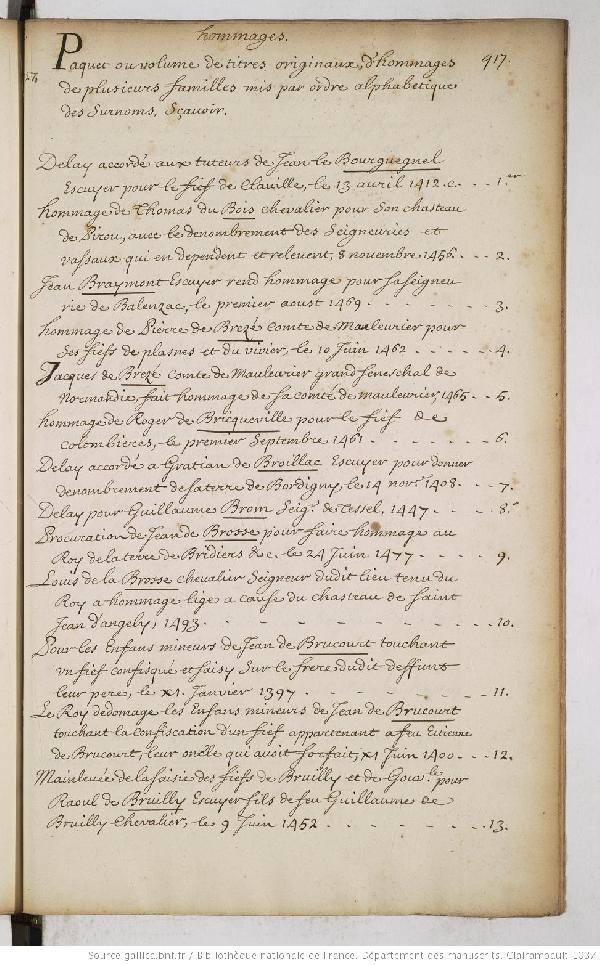 hommages.
Paquet ou volume de titres originaux, d'hommages 917.
de plusieurs familles mis par ordre alphabetique
des Surnoms, Sçavoir.
Delay accordé aux tuteurs de Jean le Bourguegnel
Escuyer pour le fief de Claville, le 13 avril 1412. c. . . 1.er
hommage de Thomas du Bois chevalier pour son chasteau
de Pirou, avec le denombrement des Seigneuries et
vassaux qui en dependent et relevent, 8 novembre 1456. . . 2.
Jean Braymont Escuyer rend hommage pour sa seigneu
rie de Balenzac, le premier aoust 1469 . - - - - - . 3.
hommage de Pierre de Brezé Comte de Maulevrier pour
ses fiefs de plasnes et du vivier, le 10 Juin 1462 - - - - . 4.
Jacques de Brezé Comte de Maulevrier grand Seneschal de
Normandie, fait hommage de sa comté de maulevrier, 1465 . . 5.
hommage de Roger de Bricqueville pour le fief de
colombieres, le premier Septembre 1461 . - - - - - . 6.
Delay accordé a Gratian de Broillac Escuyer pour donner
denombrement de sa terre de Bordigny, le 14 nov.e 1408. - - . 7.
Delay pour Guillaume Brom Seig.r de Tessel, 1447 . - - - . 8.
Procuration de Jean de Brosse pour faire hommage au
Roy de la terre de Bridiers &c. le 24 Juin 1477 - - - - . 9.
Louis de la Brosse chevalier Seigneur dudit lieu tenu du
Roy a hommage lige a cause du chasteau de Saint
Jean d'angely, 1493. - - - - - - - - . 10.
Pour les Enfans mineurs de Jean de Brucourt touchant
un fief confisqué et saisy sur le frere dudit deffunt
leur pere, le XI. Janvier 1397 - - - - - - . 11.
Le Roy dedomage les Enfans mineurs de Jean de Brucourt
touchant la confiscation d'un fief appartenant a feu Etienne
de Brucourt, leur oncle qui avoit forfait, XI Juin 1400 . . . 12.
Mainlevée de la saisie des fiefs de Bruilly et de pour
Raoul de Bruilly Escuyer fils de feu Guillaume de
Bruilly Chevalier, le 9 Juin 1452 . - - - - - - . 13.
Source gallica.bnf.fr / Bibliothèque nationale de France. Département des manuscrits. Clairambault 1037